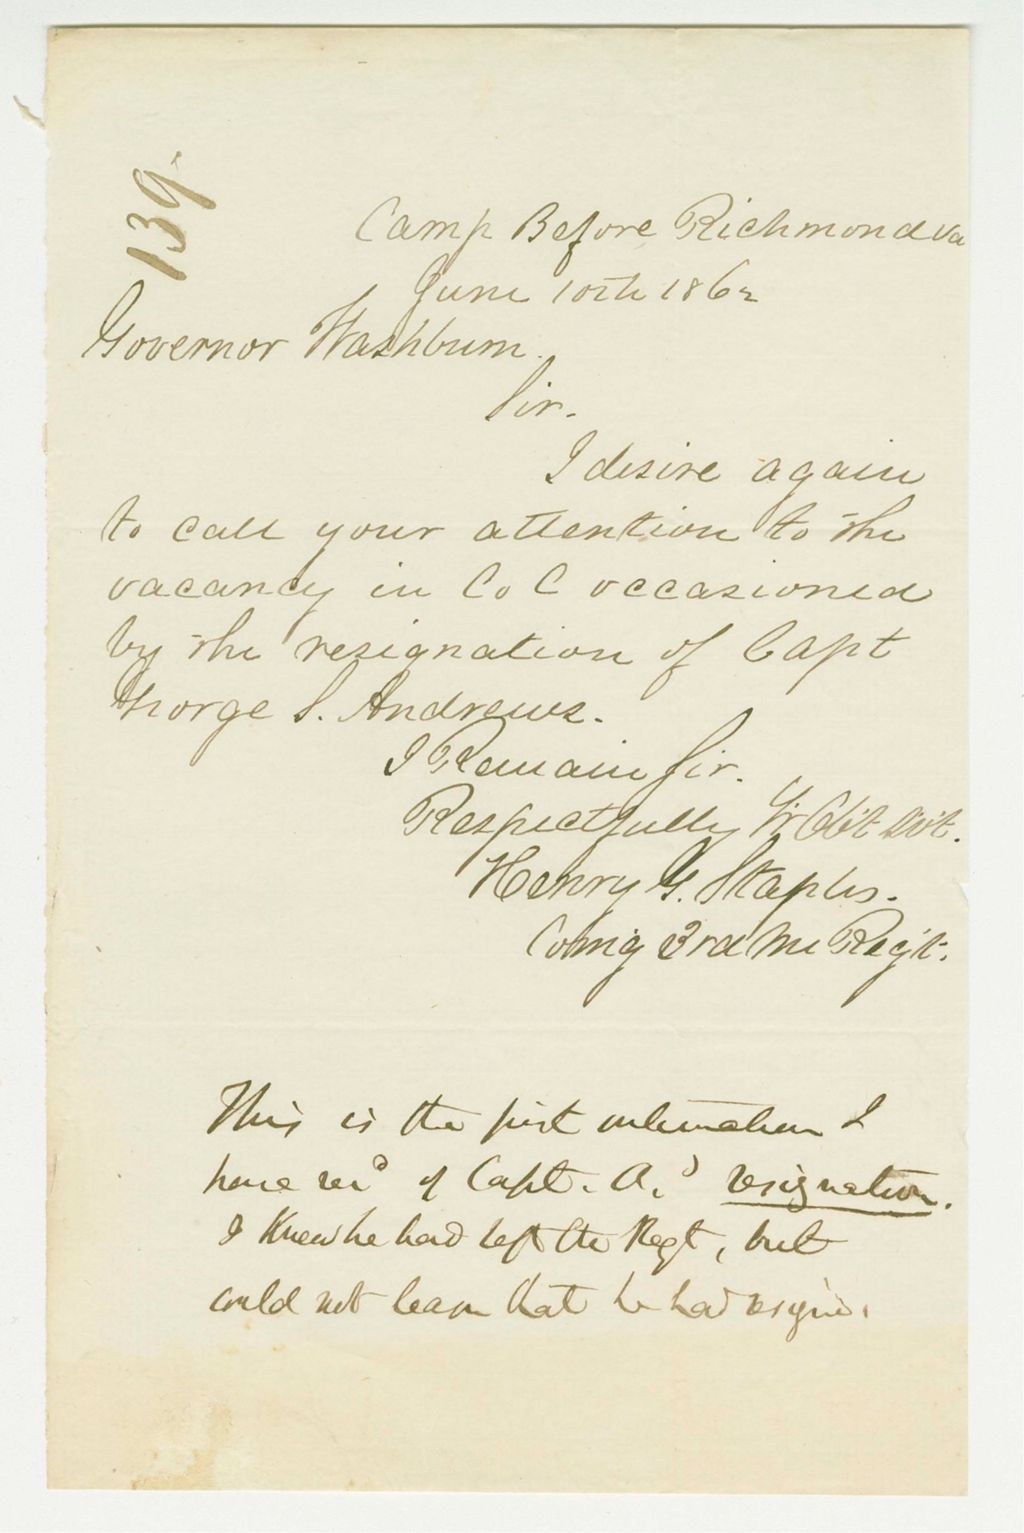 139.
Camp Before Richmond Va
June 10th 1862
Governor Washburn.
Sir.
I desire again
to call your attention to the
vacancy in Co C occasioned
by the resignation of Capt
George S. Andrews.
I Remain Sir.
Respectfully Yr Obt Svt.
Henry G. Staples.
Comg 3rd Me Reg't.
This is the first intimation I
have recd of Capt. A.s resignation.
I knew he had left the Regt, but
could not learn that he had resigned.